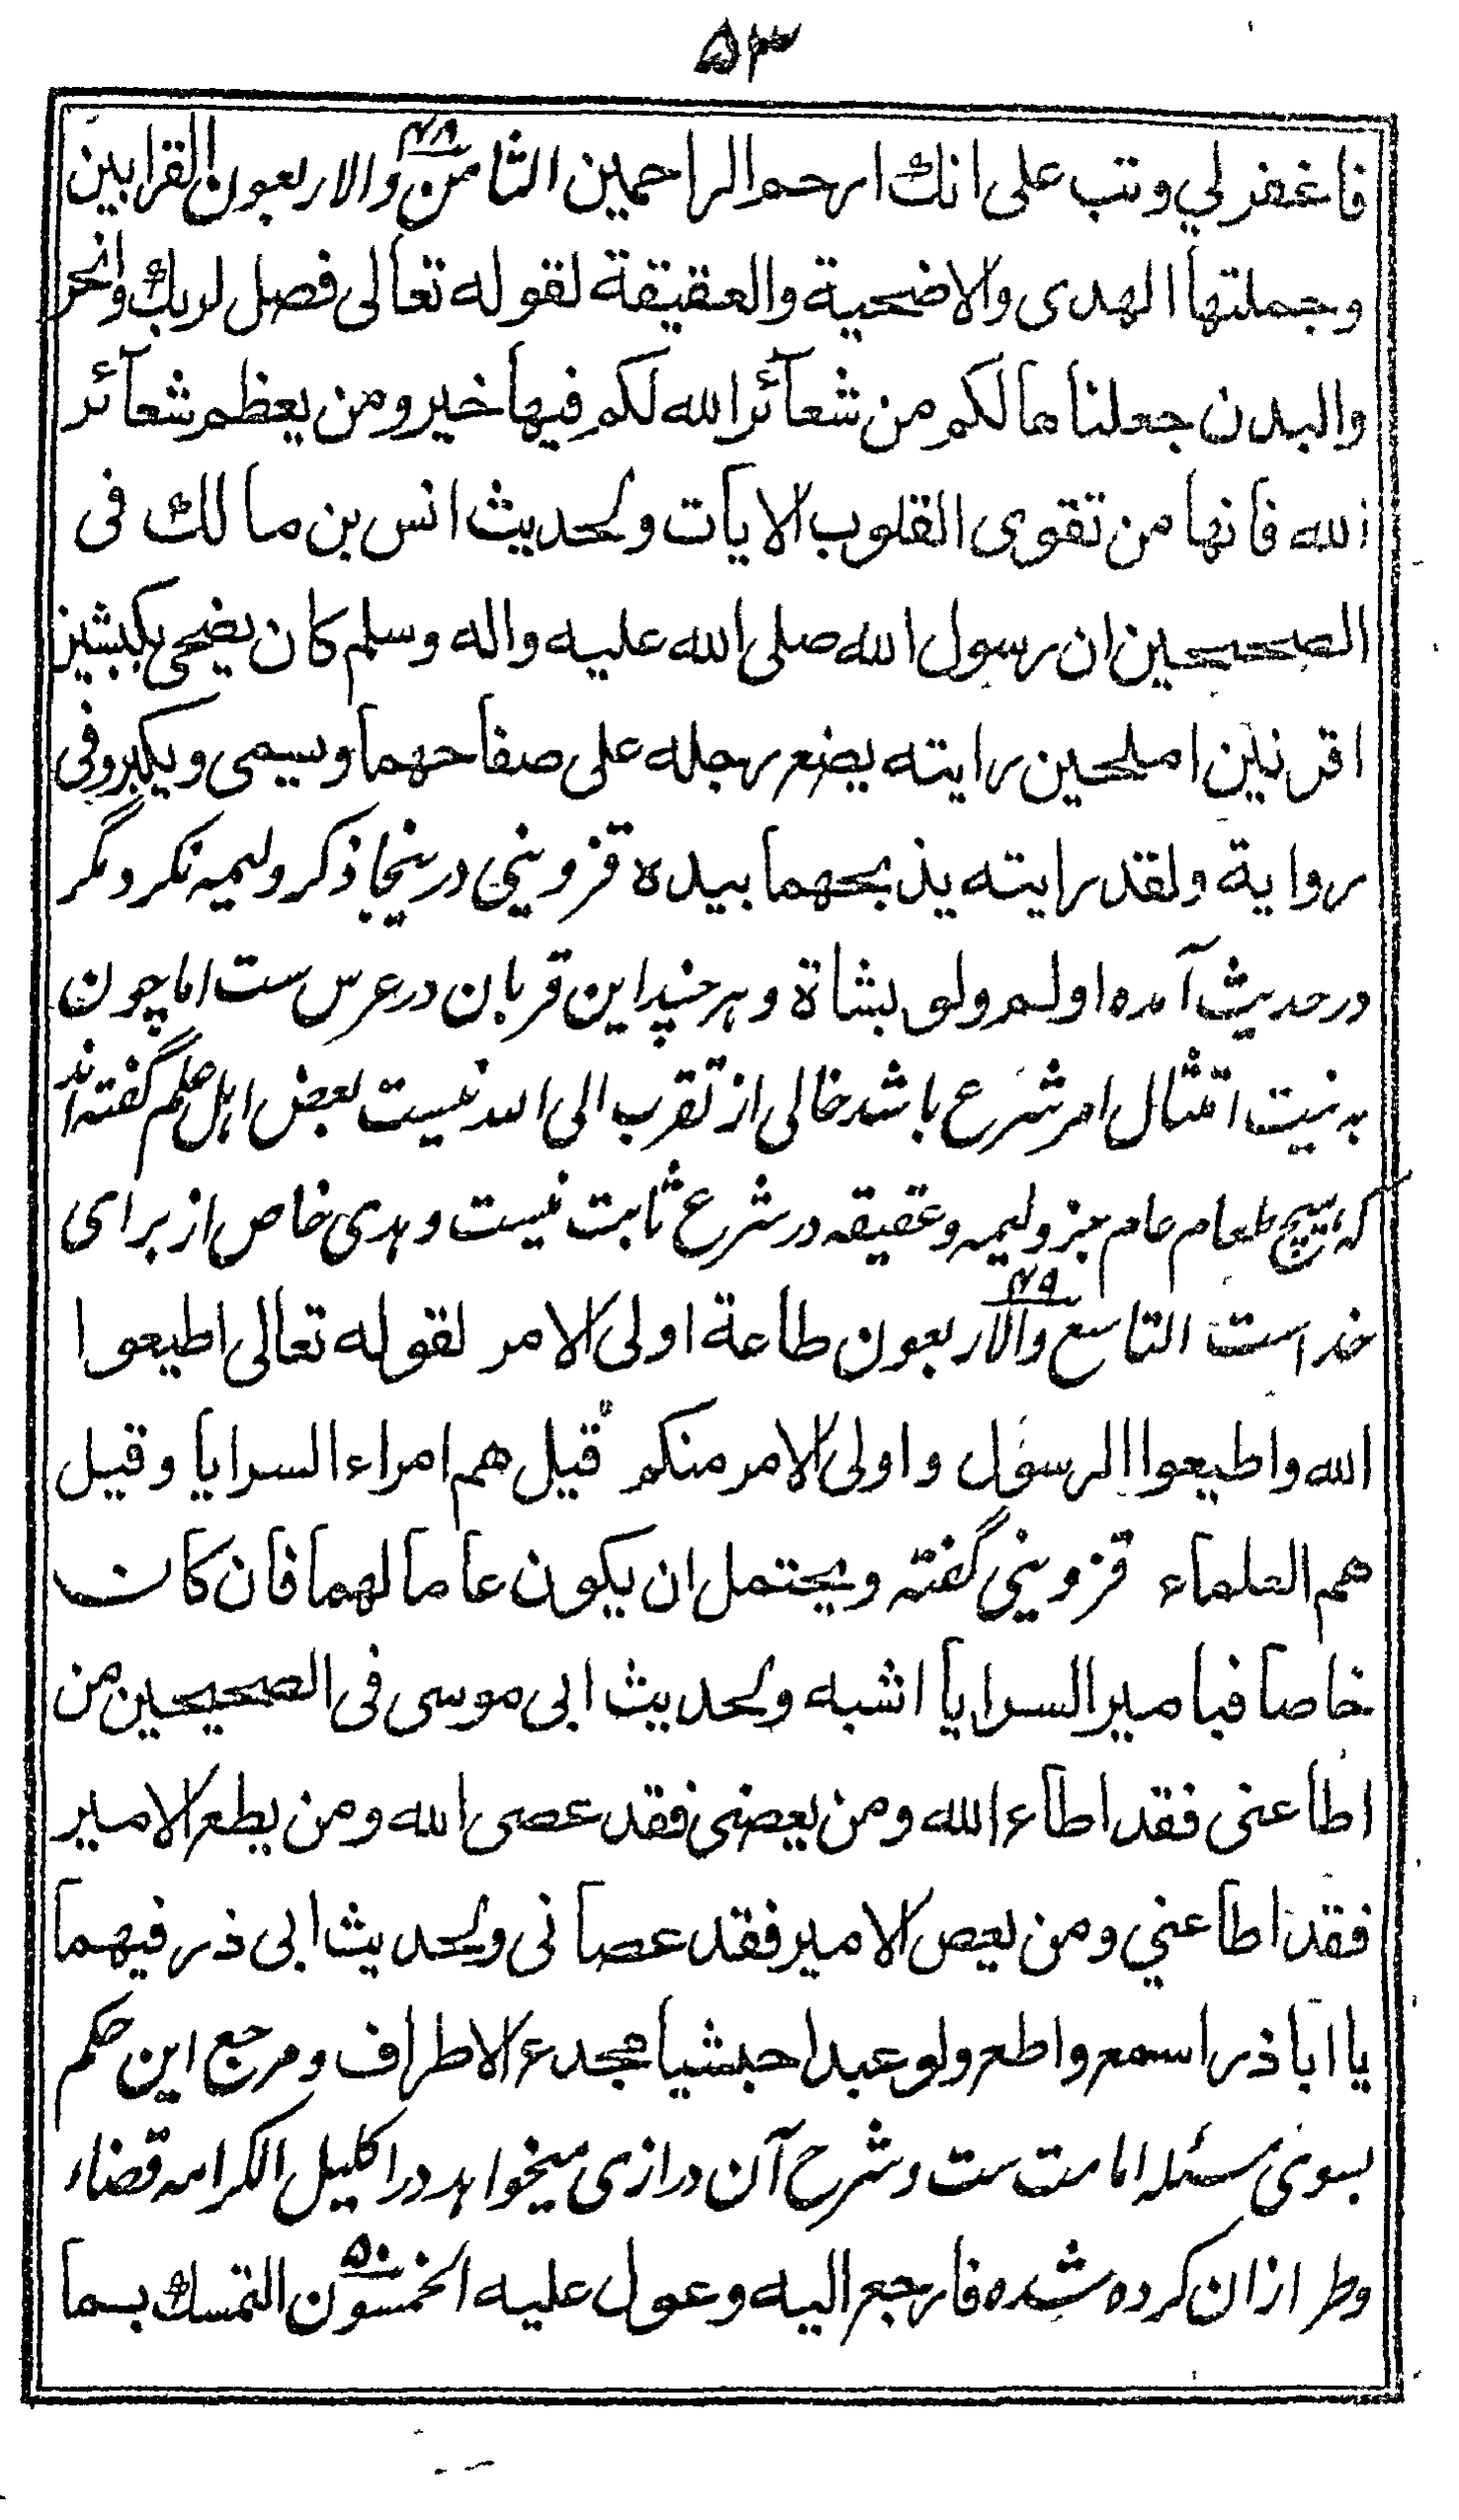 ۵۳
فاغفر لي وتب على انك ارحم الراحمين الثامن والاربعون القرابين
۴۸
وجملتها الهدى والاضحية والعقيقة لقوله تعالى فصل لربك وانحر
والبدن جعلناها لكم من شعآئر الله لكم فيها خير ومن يعظم شعآئر
الله فانها من تقوى القلوب الايات ولحديث انس بن مالك فى
الصحيحين ان رسول الله صلى الله عليه واله وسلم كان يضحى بكبشين
اقرنين املحين رايته يضع رجله على صفاحهما ويسمى ويكبر وفى
رواية ولقد رايته يذبحهما بيده قزويني درينجا ذكر وليمه نكرد مگر
در حديث آمده اولم ولو بشاة و هر چند اين قربان در عرس ست اما چون
به نيت امتثال امر شرع باشد خالى از تقرب الى الله نيست بعض اهل علم گفته اند
كه هيچ طعام عام جز وليمه و عقيقه در شرع ثابت نيست و هدى خاص از براى
خداست التاسع والاربعون طاعة اولى الامر لقوله تعالى اطيعوا
۴۹
الله واطيعوا الرسول واولى الامر منكم قيل هم امراء السرايا وقيل
هم العلماء قزويني گفته ويحتمل ان يكون عاما لهما فان كان
خاصا فبامير السرايا اشبه ولحديث ابى موسى فى الصحيحين من
اطاعنى فقد اطاع الله ومن يعصنى فقد عصى الله ومن يطع الامير
فقد اطاعني ومن يعص الامير فقد عصانى ولحديث ابى ذر فيهما
يا ابا ذر اسمع واطع ولو عبدا حبشيا مجدع الاطراف و مرجع اين حكم
بسوى مسئله امامت ست و شرح آن درازى ميخواهد در اكليل الكرامه قضاء
وطر ازان كرده شده فارجع اليه وعول عليه الخمسون التمسك بما
۵۰